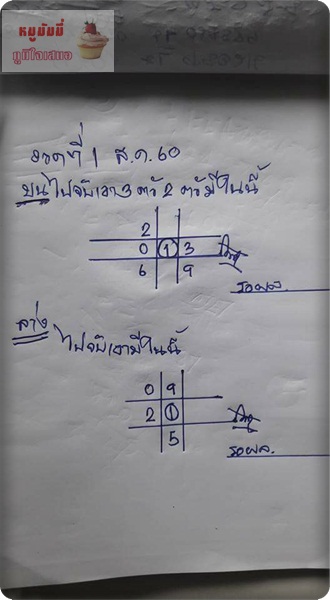 หมูมัมมี่
มูมีใจเสมอ
งวดที่ 1 ส.ค. 60
บนไปจับเอา 3 ตัว 2 ตัวมีในนี้
2
0 1 3
6 9
รอผล
ล่าง
ไปจับเอามีในนี้
0 9
2 1
5
รอผล.